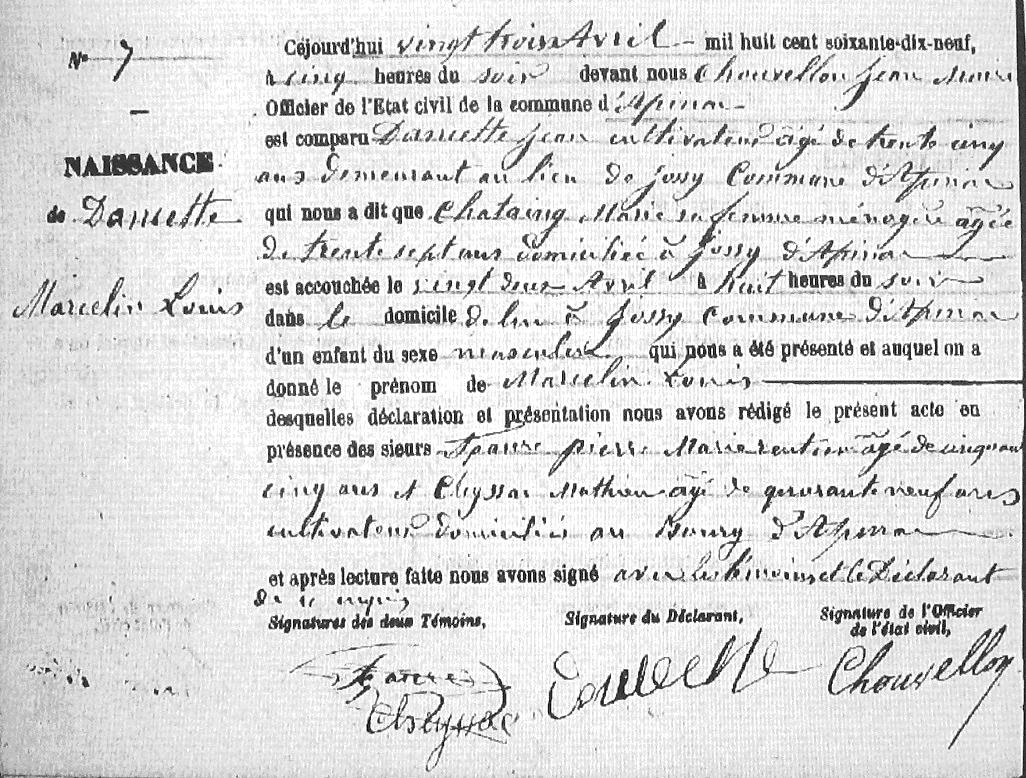 N° 7
NAISSANCE
de Damette
Marcelin Louis
Cejourd'hui vingt trois Avril mil huit cent soixante-dix-neuf,
à cinq heures du soir devant nous Chouvellon Jean Maire
Officier de l'Etat civil de la commune d'Apinac
est comparu Damette Jean cultivateur âgé de trente cinq
ans demeurant au lieu de Jossy Commune d'Apinac
qui nous a dit que Chataing Marie sa femme ménagère âgée
de trente sept ans domiciliée à Jossy d'Apinac
est accouchée le vingt deux Avril à huit heures du soir
dans le domicile de lui à Jossy Commune d'Apinac
d'un enfant du sexe masculin qui nous a été présenté et auquel on a
donné le prénom de Marcelin Louis
desquelles déclaration et présentation nous avons rédigé le présent acte en
présence des sieurs Faure pierre Marie rentier âgé de cinquante
cinq ans et Cheyssac Mathieu âgé de quarante neuf ans
cultivateur domiciliés au Bourg d'Apinac
et après lecture faite nous avons signé avec les témoins et le Déclarant
de ce requis
Signatures des deux Témoins,
Signature du Déclarant,
Signature de l'Officier
de l'état civil,
Faure
Cheyssac
Damette
Chouvellon